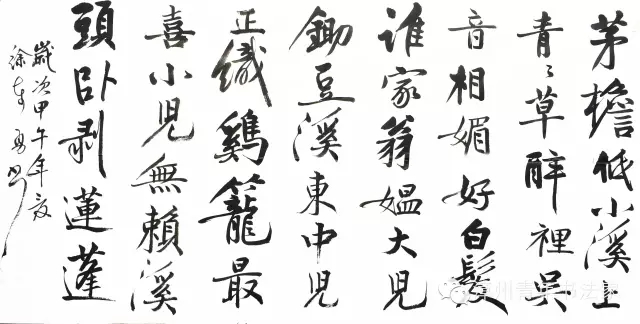 茅檐低小溪上
青々草醉裡吳
音相媚好白髮
誰家翁媼大兒
鋤豆溪東中兒
正織鷄籠最
喜小兒無賴溪
頭卧剥蓮蓬
歲次甲午年夏
徐 勇书
州青年书法家